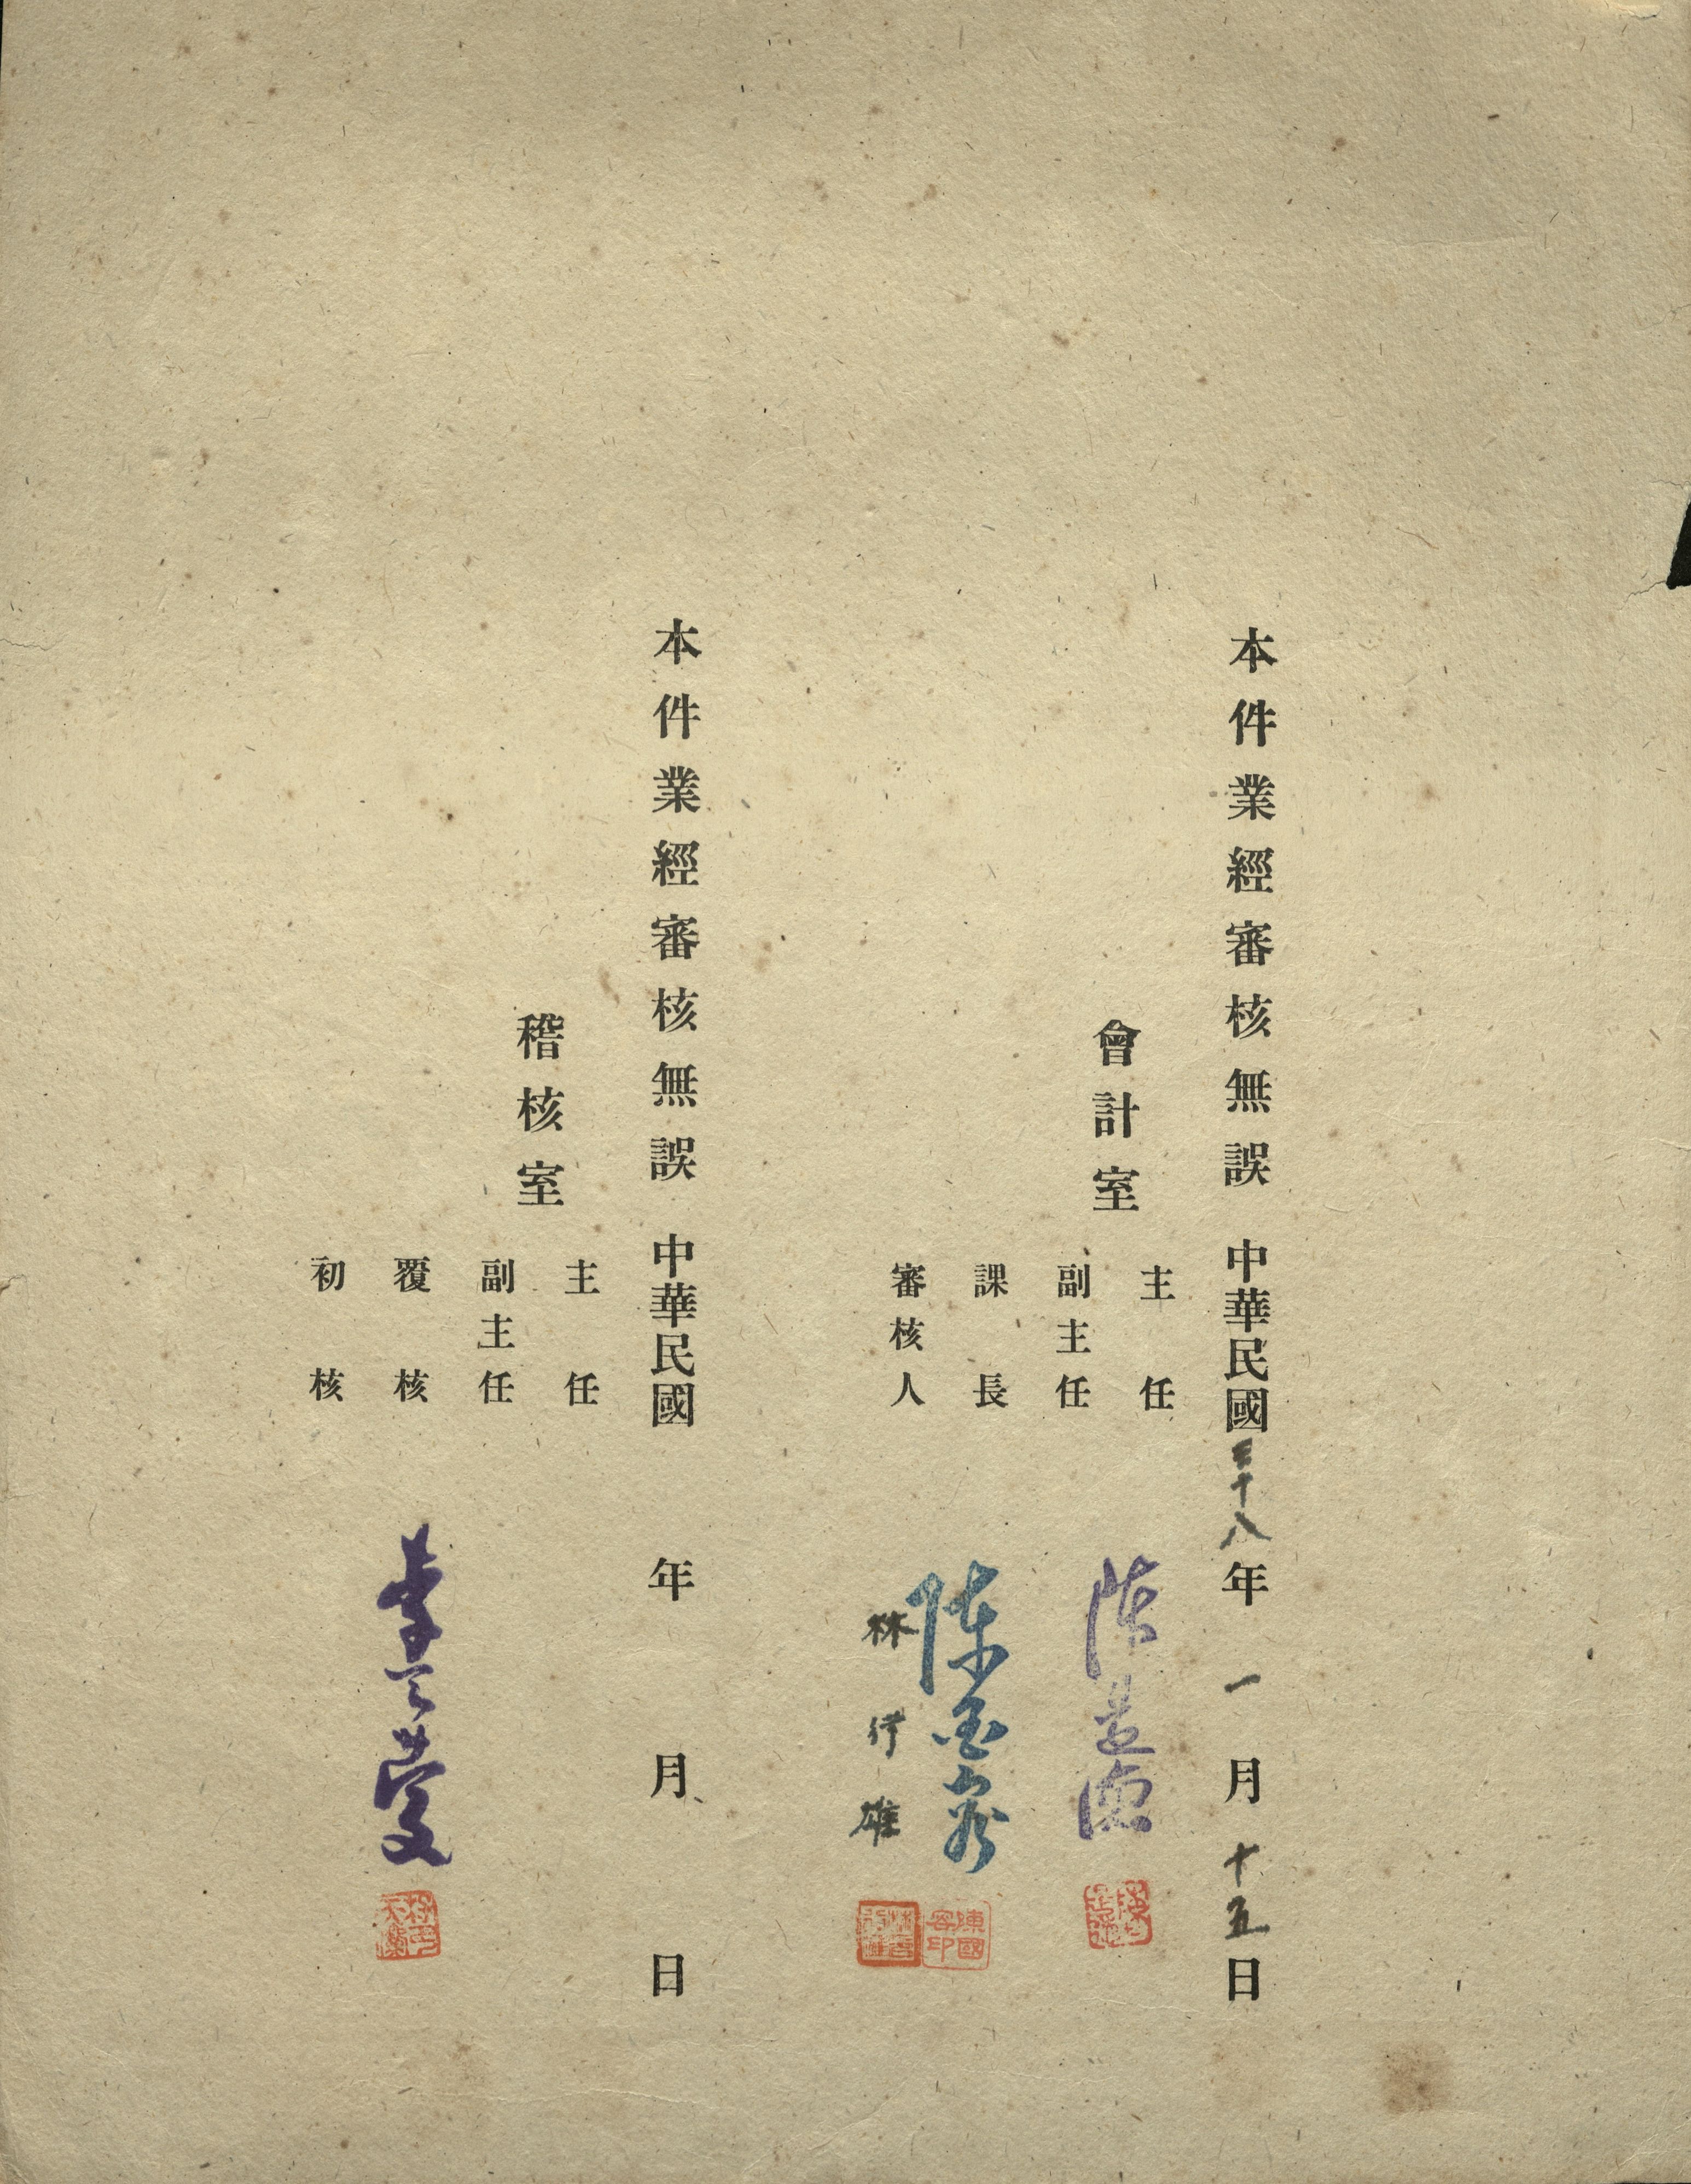 本件業經審核無誤 中華民國三十八年一月十五日
會計室
主任
副主任
課長 陳國容
審核人 林行雄
陳國容印
本件業經審核無誤 中華民國 年 月 日
稽核室
主任
副主任
覆核
初核